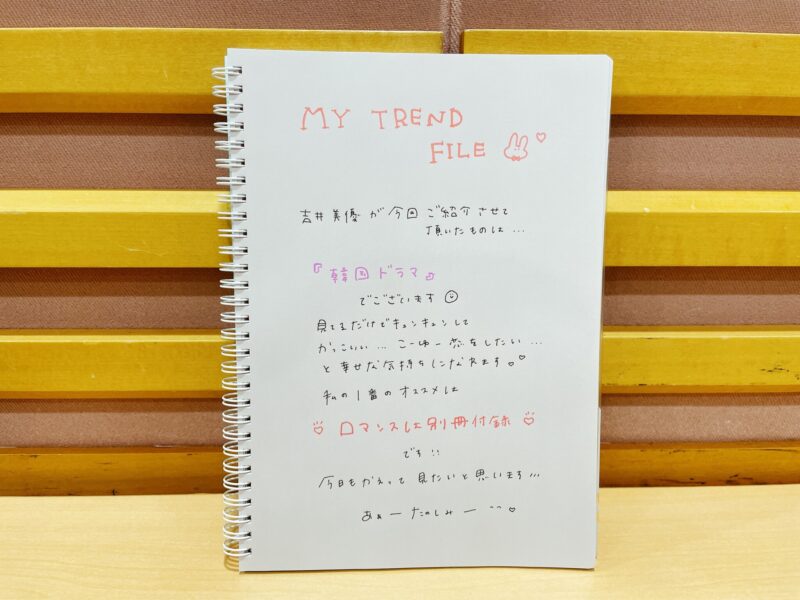 MY TREND
FILE
吉井美優が今回ご紹介させて
頂いたものは…
『韓国ドラマ』
でございます
見てるだけでキュンキュンして
かっこいい…こーゆー恋をしたい…
と幸せな気持ちになれます。
私の1番のオススメは
ロマンスは別冊付録
です!!
今日もかえって見たいと思います…
あぁーたのしみー